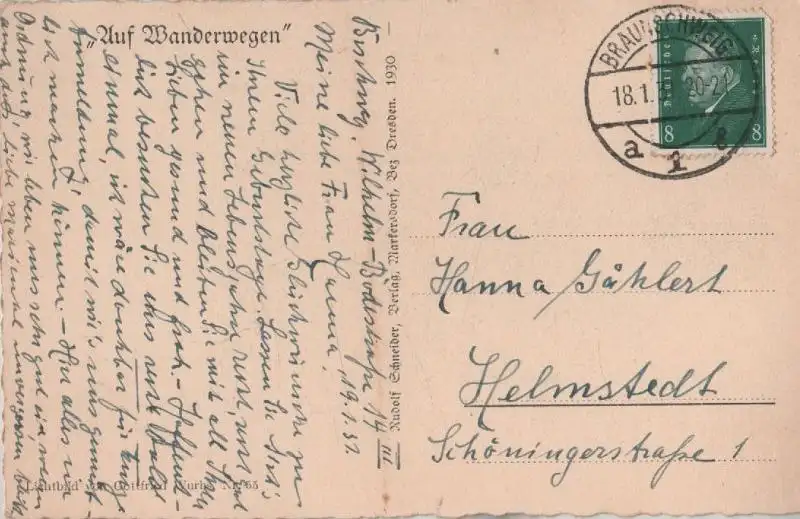 „Auf Wanderwegen"
Brschwg. Wilhelm-Bodestraße 14 III
Meine liebe Frau Hanna! 19.1.31.
Viele herzliche Glückwünsche zu
Ihrem Geburtstage. Lassen Sie sich's
im neuen Lebensjahr recht, recht gut
gehen und bleiben Sie mit all Ihren
Lieben gesund und froh. - Hoffent-
lich besuchen Sie uns recht bald
einmal, ich wäre dankbar für
Anmeldung, damit wir's uns gemüt-
lich machen können. - Hier alles in
Ordnung, wir leben uns sehr gut ein, wenn
auch das liebe Mariental unvergessen bleibt
Lichtbild von Gottfried Nr. 65
Rudolf Schneider, Verlag, Markersdorf, Bez Dresden. 1930
BRAUNSCHWEIG
18.1. 20-21
a 1 g
Deutsches
8 8
Frau
Hanna Gählert
Helmstedt
Schöningerstraße 1